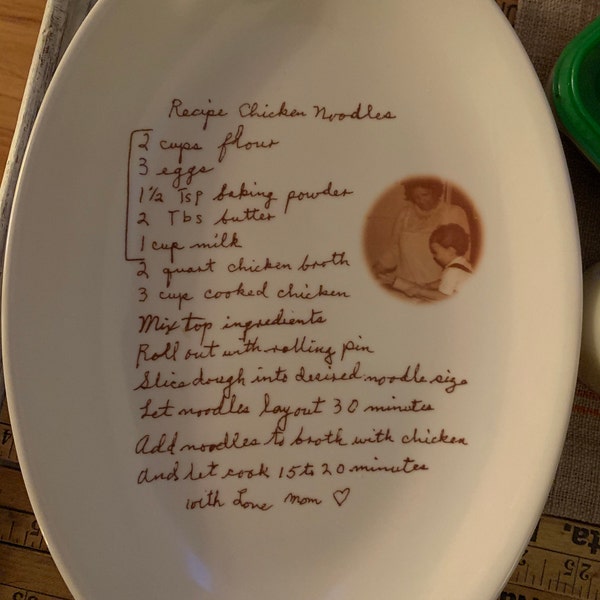 Recipe Chicken Noodles
2 cups flour
3 eggs
1 1/2 Tsp baking powder
2 Tbs butter
1 cup milk
2 quart chicken broth
3 cup cooked chicken
Mix top ingredients
Roll out with rolling pin
Slice dough into desired noodle size
Let noodles lay out 30 minutes
Add noodles to broth with chicken
And let cook 15 to 20 minutes
With Love Mom ♡